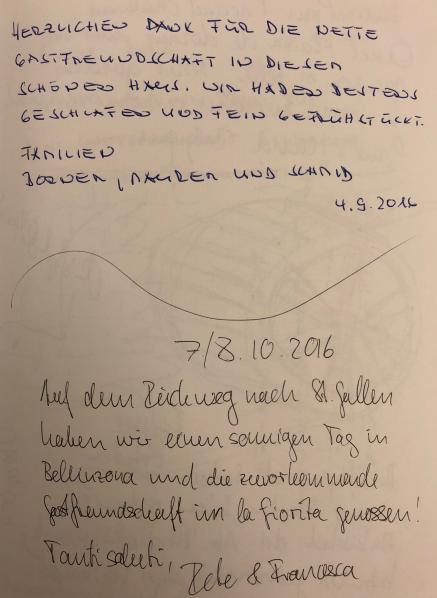 HERZLICHEN DANK FÜR DIE NETTE
GASTFREUNDSCHAFT IN DIESEM
SCHÖNEN HAUS. WIR HABEN BESTENS
GESCHLAFEN UND FEIN GEFRÜHSTÜCKT.
FAMILIEN
UND SCHMID
4.9.2016
7/8.10.2016
Auf dem Rückweg nach St. Gallen
haben wir einen sonnigen Tag in
Bellinzona und die zuvorkommende
Gastfreundschaft im la fiorita genossen!
Tanti saluti,
& Francesca